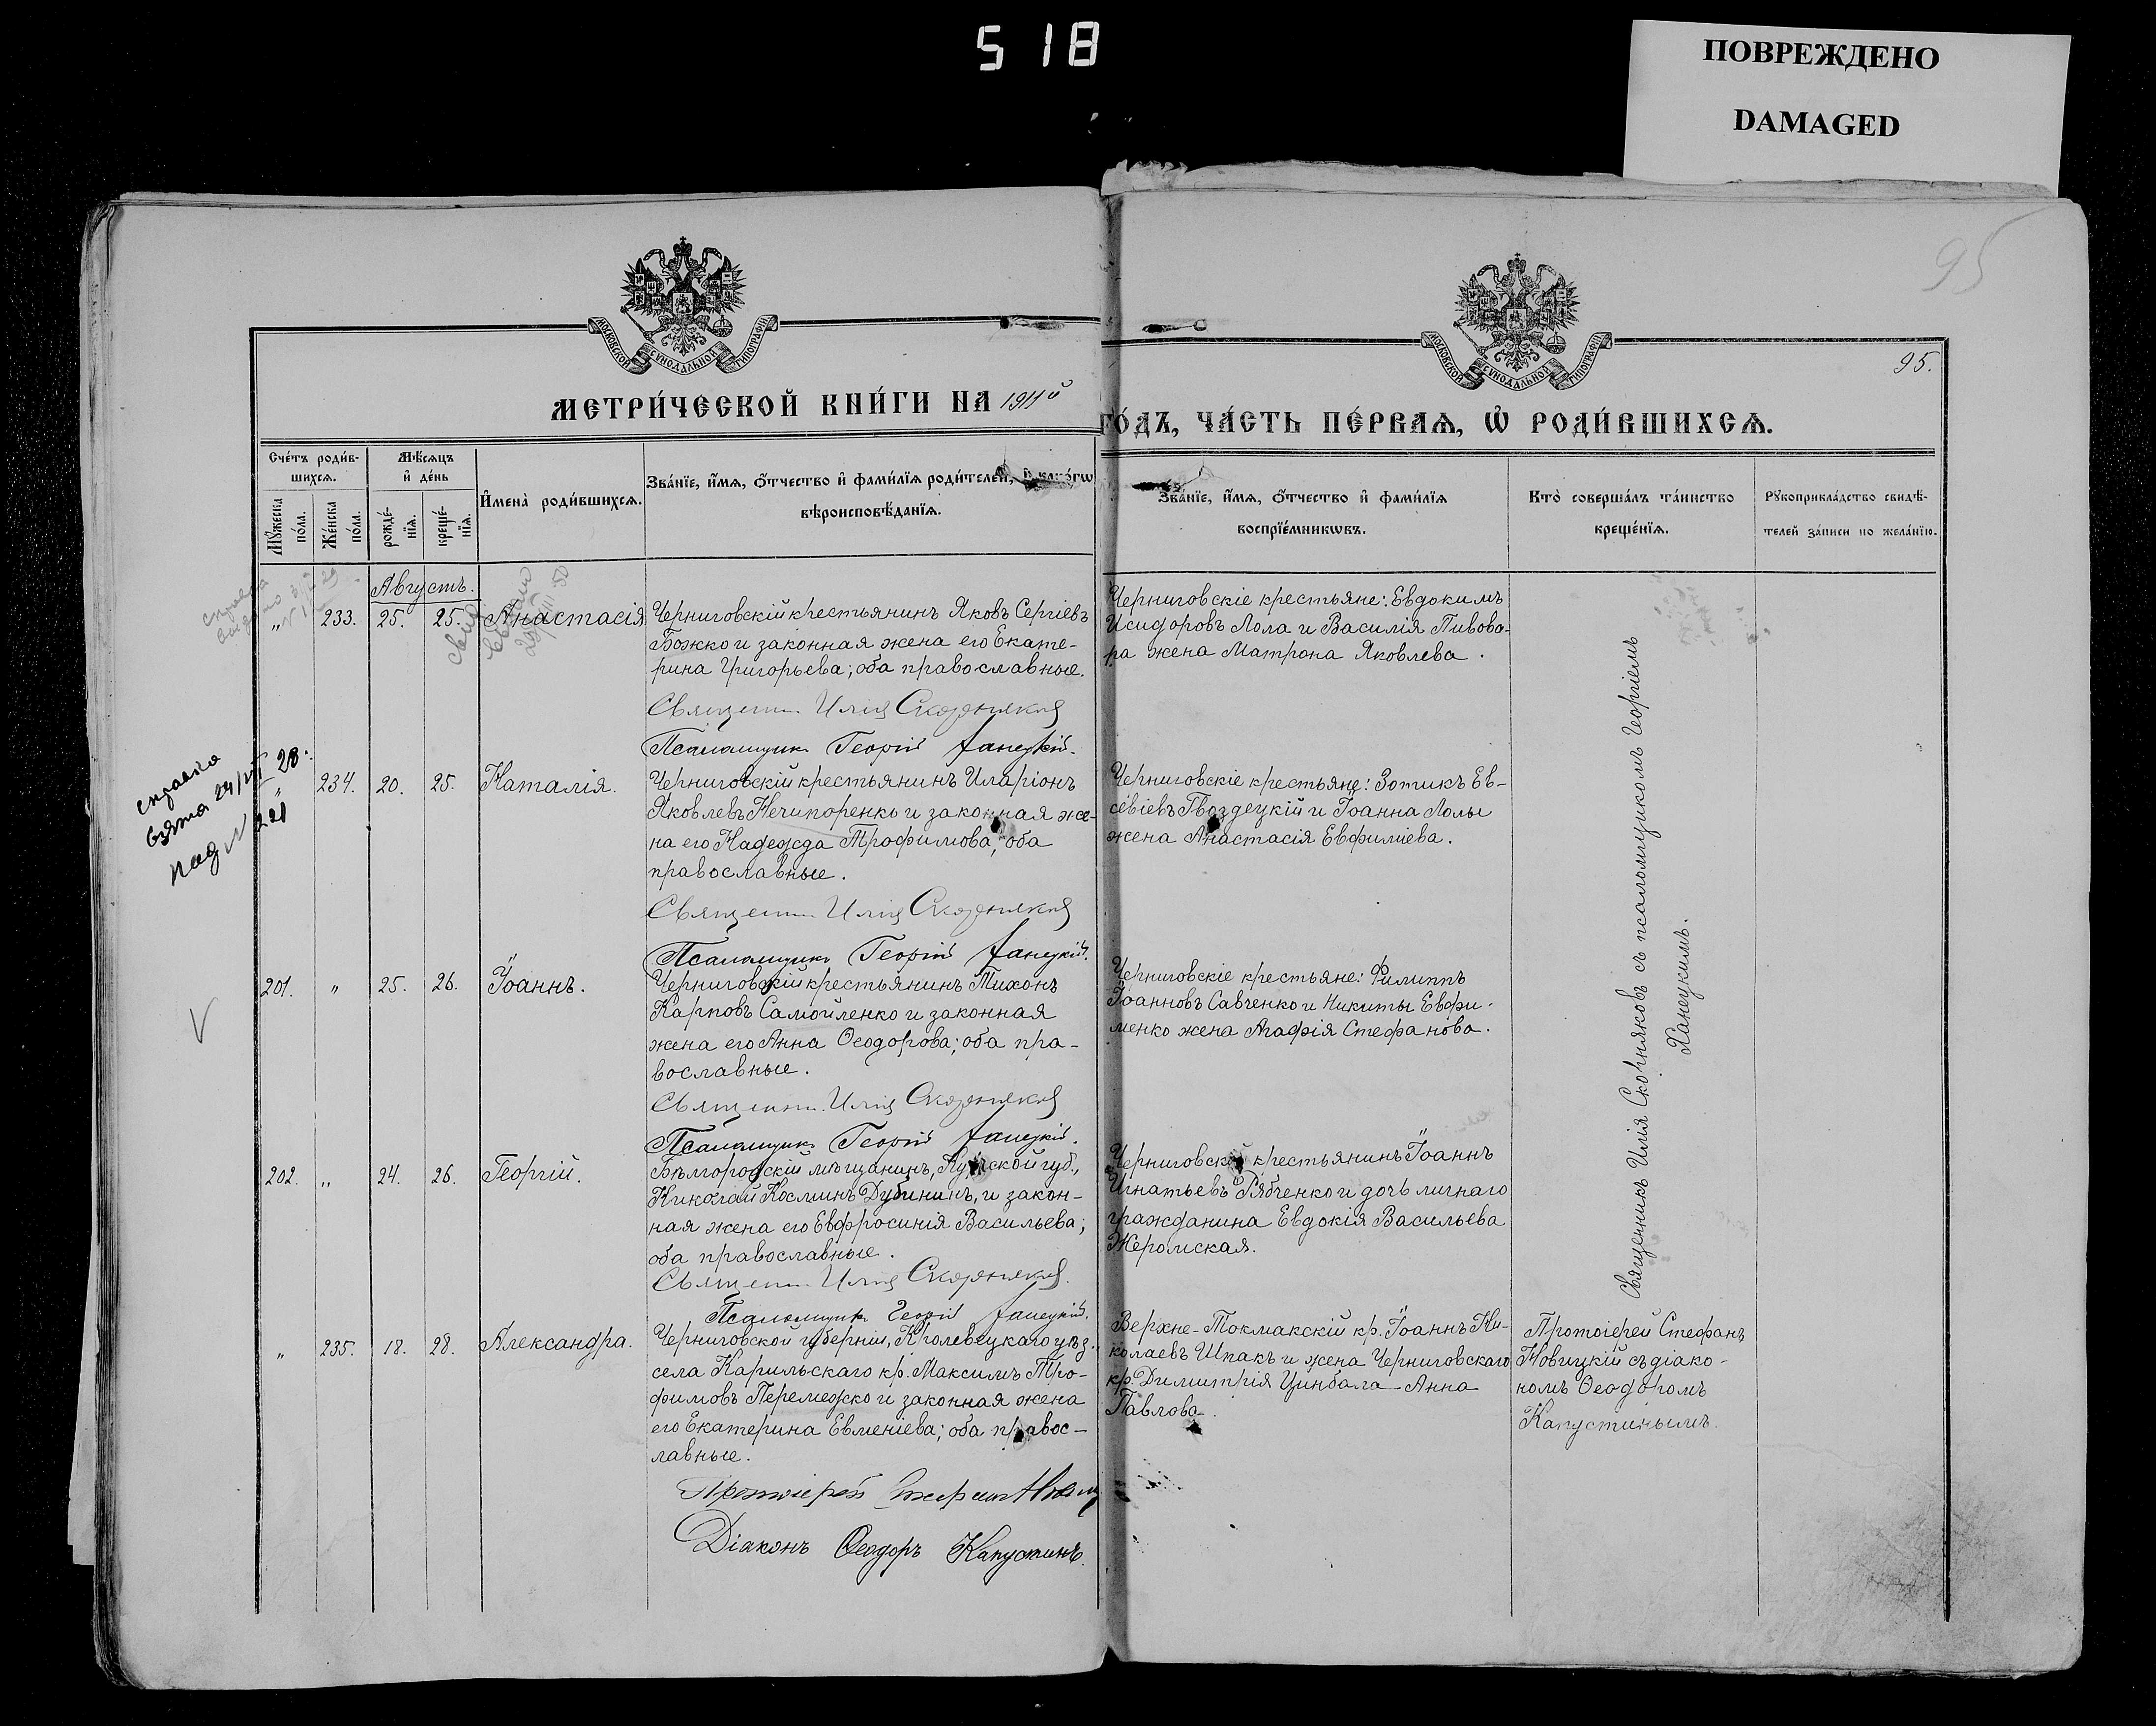 518
ПОВРЕЖДЕНО
DAMAGED
95
95.
МОСКОВСКОЙ СѴНОДАЛЬНОЙ ТИПОГРАФІИ
МОСКОВСКОЙ СѴНОДАЛЬНОЙ ТИПОГРАФІИ
МЕТРИ́ЧЕСКОЙ КНИ́ГИ НА 1911й
ГО́ДЪ, ЧА́СТЬ ПЕ́РВАѦ, Ѡ҆ РОДИ́ВШИХСѦ.
Сче́тъ роди́в-
шихсѧ.
Мꙋ́жеска по́ла.
Же́нска по́ла.
Мѣ́сѧцъ
и҆ де́нь
рожде́-нїѧ.
креще́-нїѧ.
И҆мена̀ роди́вшихсѧ.
Зва́нїе, и҆́мѧ, ѻ҆́тчество и҆ фами́лїѧ роди́телей,
вѣроисповѣ́данїѧ.
Зва́нїе, и҆́мѧ, ѻ҆́тчество и҆ фами́лїѧ
воспрїе́мникѡвъ.
Кто̀ соверша́лъ та́инство
креще́нїѧ.
Рꙋкоприкла́дство свидѣ́-
телей за́писи по жела́нїю.
Августъ.
„ 233. 25. 25. Анастасія
Черниговскій крестьянинъ Яковъ Сергіевъ
Божко и законная жена его Екате-
рина Григорьева; оба православные.
Священник Илія Скорняковъ
Псаломщикъ Георгій Ханецкій.
Черниговскіе крестьяне: Евдокимъ
Исидоровъ Лола и Василія Пивова-
ра жена Матрона Яковлева.
справка
взята 24/VII 28.
под N 221
„ 234. 20. 25. Наталія.
Черниговскій крестьянинъ Иларіонъ
Яковлевъ Нечипоренко и законная же-
на его Надежда Трофимова; оба
православные.
Священник Илія Скорняковъ
Псаломщикъ Георгій Ханецкій.
Черниговскіе крестьяне: Зотикъ Ев-
севіевъ Гвоздецкій и Іоанна Лолы
жена Анастасія Евфиміева.
201. „ 25. 26. Іоаннъ.
Черниговскій крестьянинъ Тихонъ
Карповъ Самойленко и законная
жена его Анна Ѳеодорова; оба пра-
вославные.
Священник Илія Скорняковъ
Псаломщикъ Георгій Ханецкій.
Черниговскіе крестьяне: Филиппъ
Іоанновъ Савченко и Никиты Евфи-
менко жена Агафія Стефанова.
202. „ 24. 26. Георгій.
Бѣлгородскій мѣщанинъ, Курской губ.,
Николай Косминъ Дубининъ, и закон-
ная жена его Евфросинія Васильева;
оба православные.
Священник Илія Скорняковъ.
Псаломщикъ Георгій Ханецкій.
Черниговскій крестьянинъ Іоаннъ
Игнатьевъ Рябченко и дочь личнаго
гражданина Евдокія Васильева
Жеромская.
Священникъ Илія Скорняковъ съ псаломщикомъ Георгіемъ
Ханецкимъ.
„ 235. 18. 28. Александра.
Черниговской губерніи, Кролевецкаго уѣз.
села Карильскаго кр. Максимъ Тро-
фимовъ Перемежко и законная жена
его Екатерина Евменіева; оба правос-
лавные.
Протоіерей Стефан Новиц
Діаконъ Ѳеодоръ Капустинъ.
Верхне-Токмакскій кр. Іоаннъ Ни-
колаевъ Шпакъ и жена Черниговскаго
кр. Димитрія Цинбала - Анна
Павлова.
Протоіерей Стефанъ
Новицкій съ діако-
номъ Ѳеодоромъ
Капустинымъ.